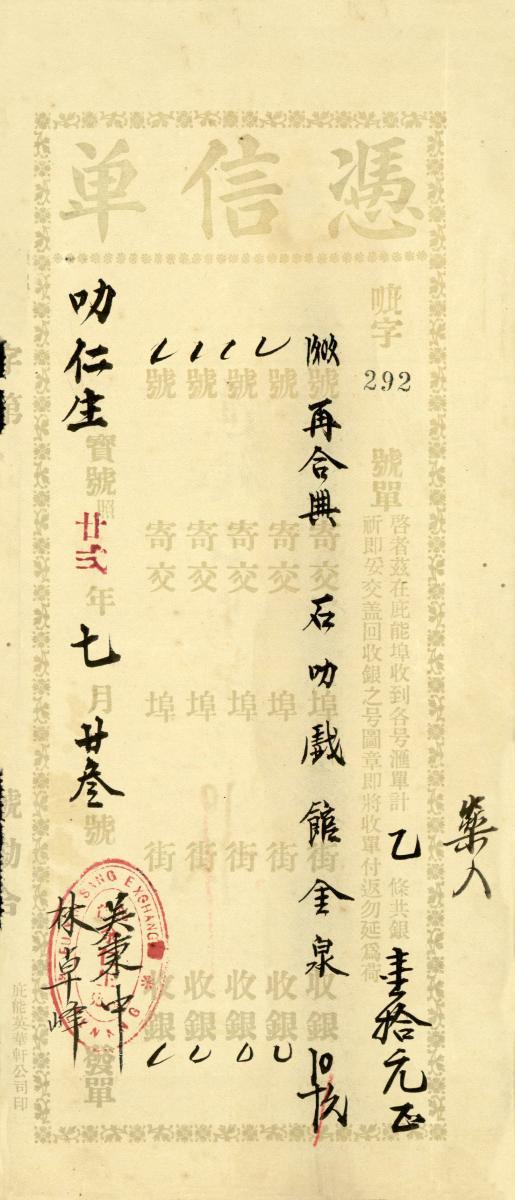 憑信单
號單
292
啓者茲在庇能埠收到各号滙單計乙條共銀壹拾元正
祈即妥交盖回收銀之号圖章即將收單付返勿延爲荷
藥入
號 再合興 寄交 石叻 埠 戲館 街 金泉 收銀 10元
號 寄交 埠 街 收銀
號 寄交 埠 街 收銀
號 寄交 埠 街 收銀
號 寄交 埠 街 收銀
叻仁生寶號照
廿弍年七月廿叁號 發單
SANG EXCHANGE
林卓峰
庇能英華軒公司印
字第
號